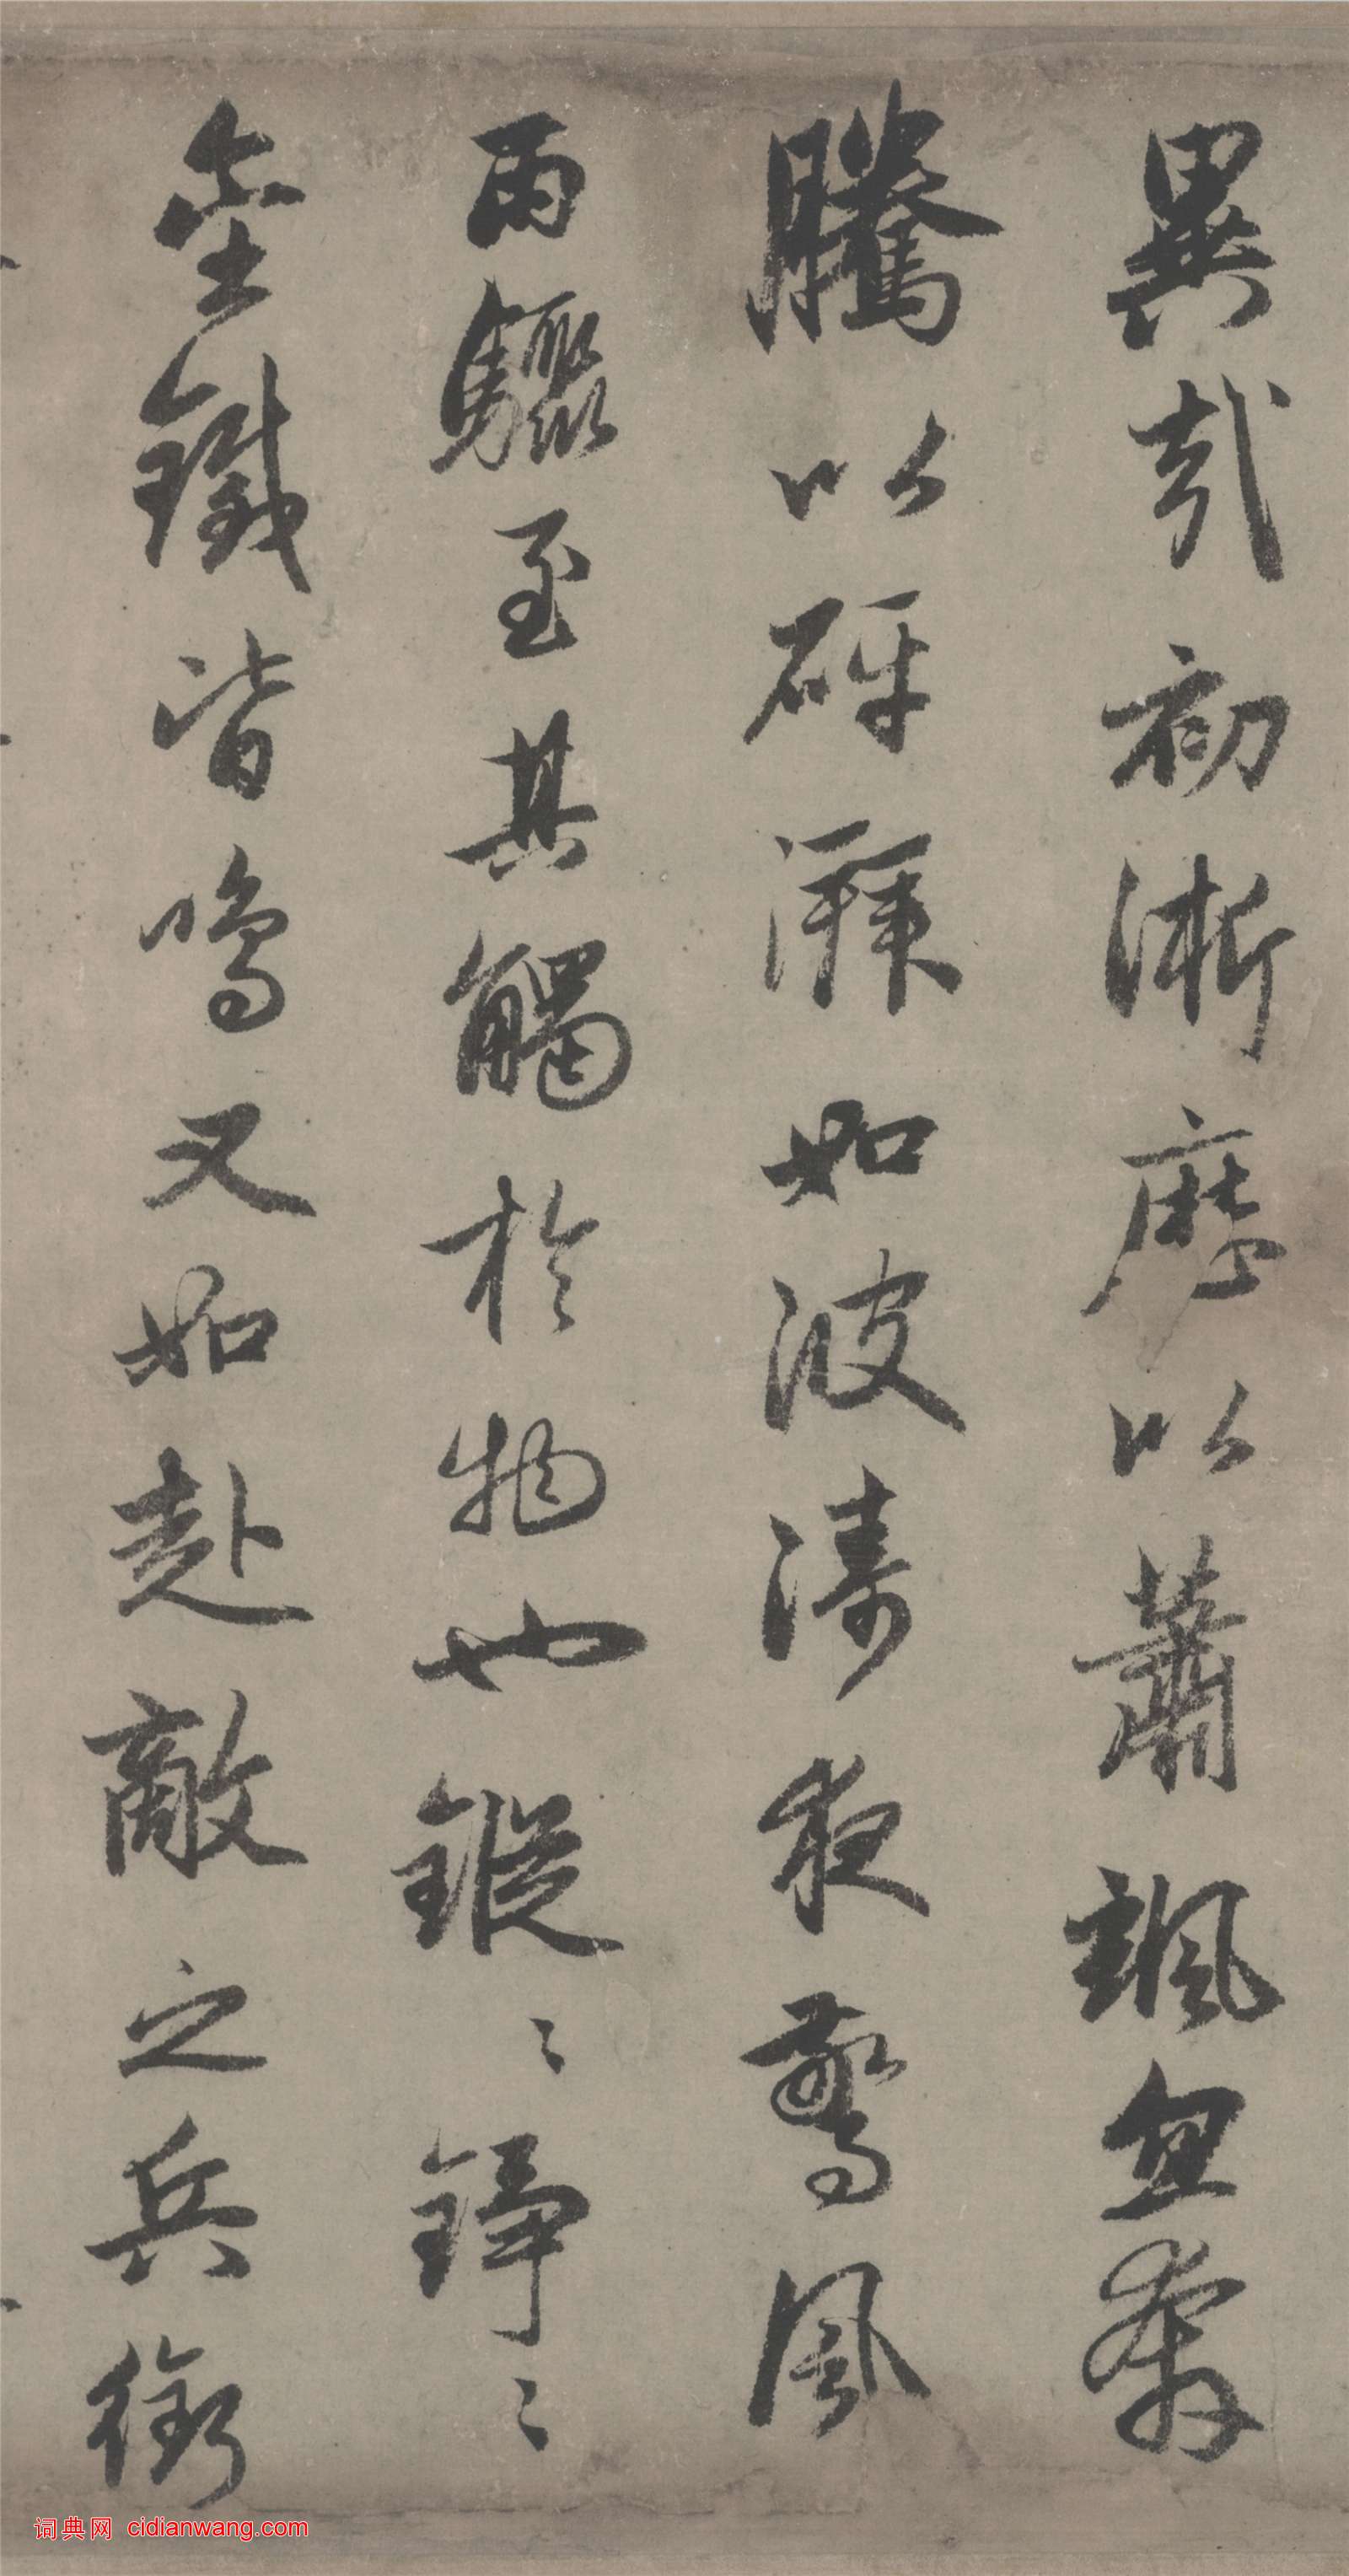 異哉初淅瀝以蕭颯忽奔
騰以砰湃如波濤夜驚風
雨驟至其觸於物也鏦〻錚〻
金鐵皆鳴又如赴敵之兵銜
词典网 cidianwang.com